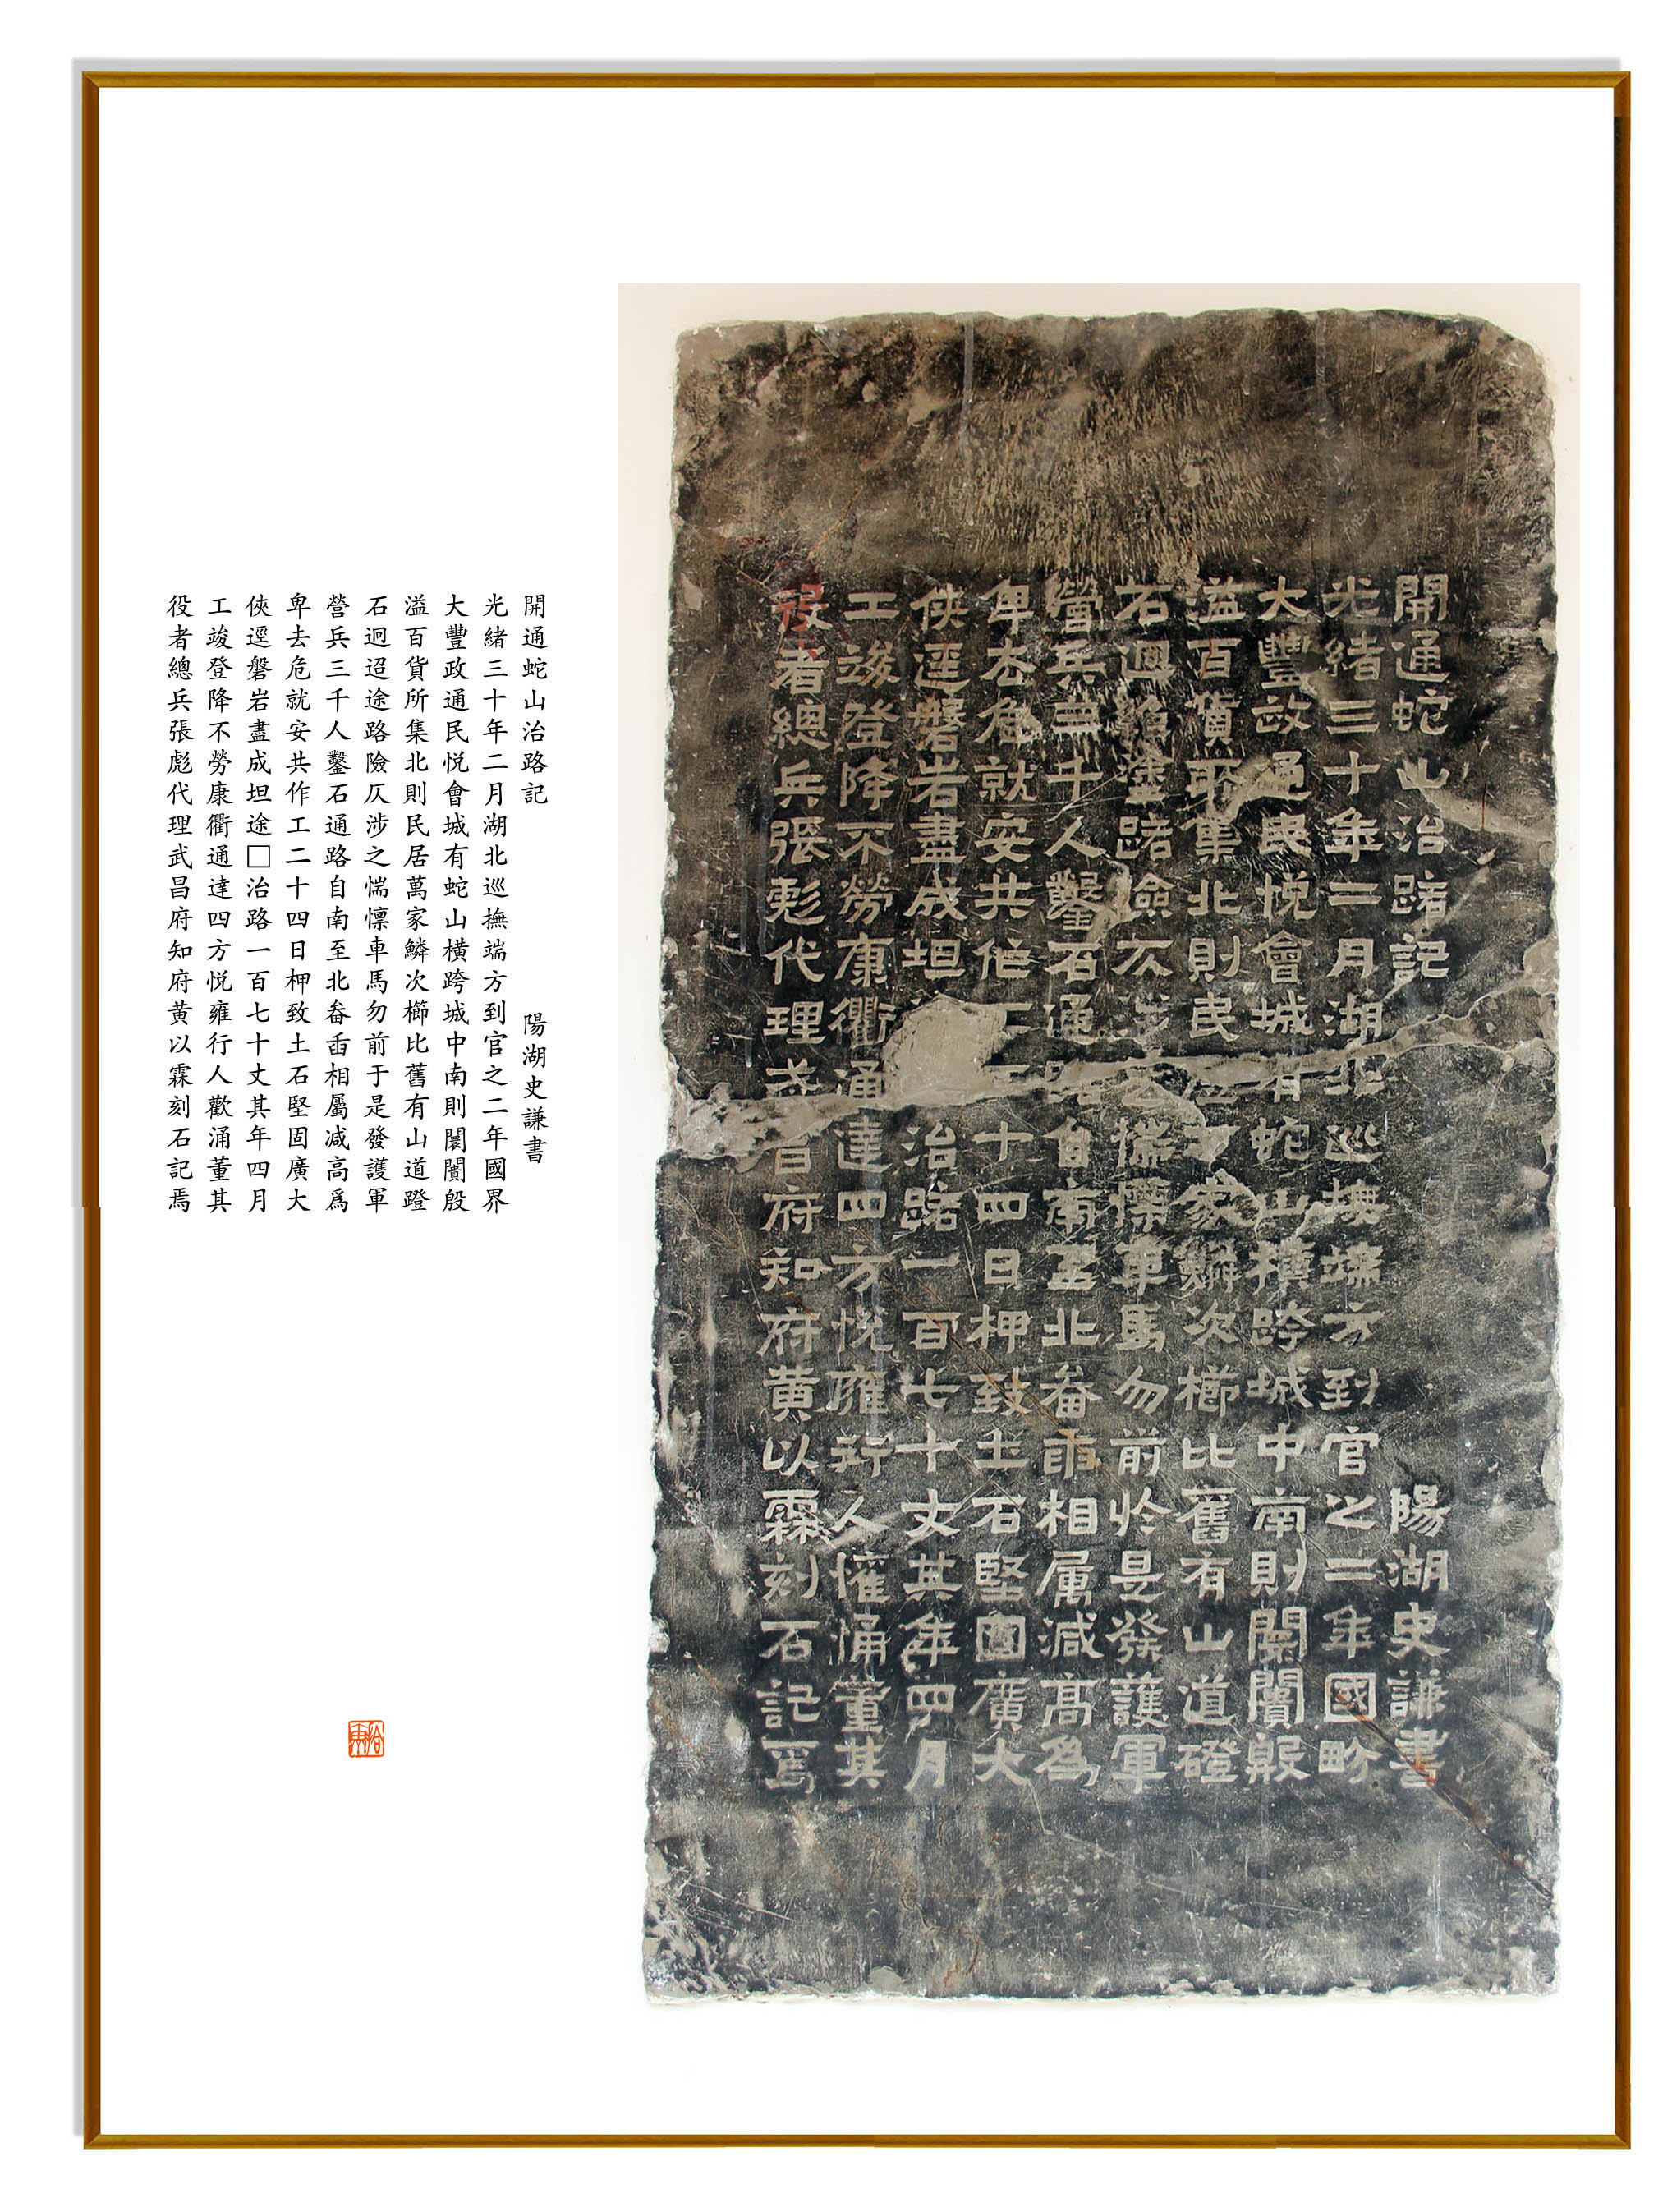 開通蛇山治路記 陽湖史謙書
光緒三十年二月湖北巡撫端方到官之二年國畍
大豐政通民悅會城有蛇山橫跨城中南則闤闠殷
溢百貨所集北則民居萬家鱗次櫛比舊有山道磴
石迥迢塗路險仄涉之惴懍車馬勿前於是發護軍
營兵三千人鑿石通路自南至北畚臿相屬減高為
卑去危就安共作工二十四日柙致土石堅固廣大
俠逕磐岩盡成坦治路一百七十丈其年四月
工竣登降不勞康衢通達四方悅雍行人懽涌董其
役者總兵張彪代理武昌府知府黃以霖刻石記焉
開通蛇山治路記 陽湖史謙書
光緒三十年二月湖北巡撫端方到官之二年國界
大豐政通民悅會城有蛇山橫跨城中南則闤闠殷
溢百貨所集北則民居萬家鱗次櫛比舊有山道蹬
石迥迢途路險仄涉之惴懍車馬勿前于是發護軍
營兵三千人鑿石通路自南至北畚臿相屬减高爲
卑去危就安共作工二十四日柙致土石堅固廣大
俠逕磐岩盡成坦途□治路一百七十丈其年四月
工竣登降不勞康衢通達四方悅雍行人歡涌董其
役者總兵張彪代理武昌府知府黃以霖刻石記焉